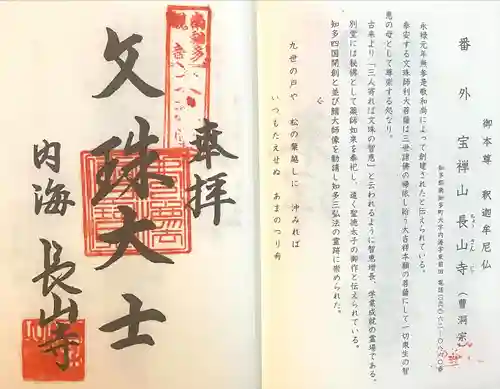 番外 宝禅山 長山寺（曹洞宗）
ちょう さん じ
御本尊 釈迦牟尼仏
知多郡南知多町大字内海字東前田 電話
永禄元年無参是歌和尚によって創建されたと伝えられている。
奉安する文珠師利大菩薩は三世諸佛の帰依し給う大吉祥本願の菩薩にして一切衆生の智
恵の母として尊崇する処なり。
古来より「三人寄れば文珠の智恵」と云われるように智恵増長、学業成就の霊場である。
別堂には秘佛として薬師如来を奉祀し、遠く聖徳太子の御作と伝えられている。
知多四国開創と並び鯖大師像を勧請し知多三弘法の霊跡に崇められた。
九世の戸や 松の葉越しに 沖みれば
いつもたえせぬ あまのつり舟
奉拝
文珠大士
内海 長山寺